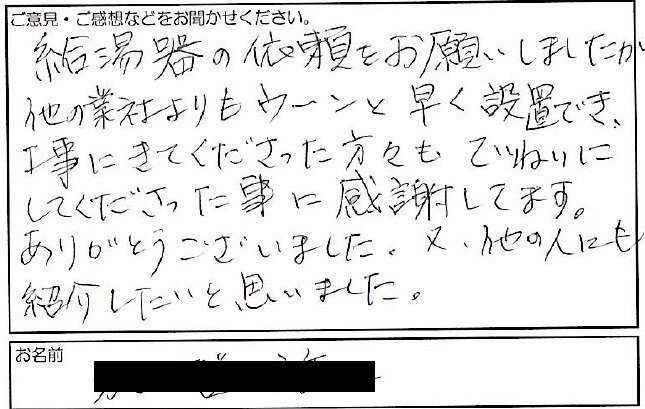 ご意見・ご感想などをお聞かせください。
給湯器の依頼をお願いしましたが
他の業社よりもウーンと早く設置でき、
工事にきてくださった方々もていねいに
してくださった事に感謝してます。
ありがとうございました。又、他の人にも
紹介したいと思いました。
お名前